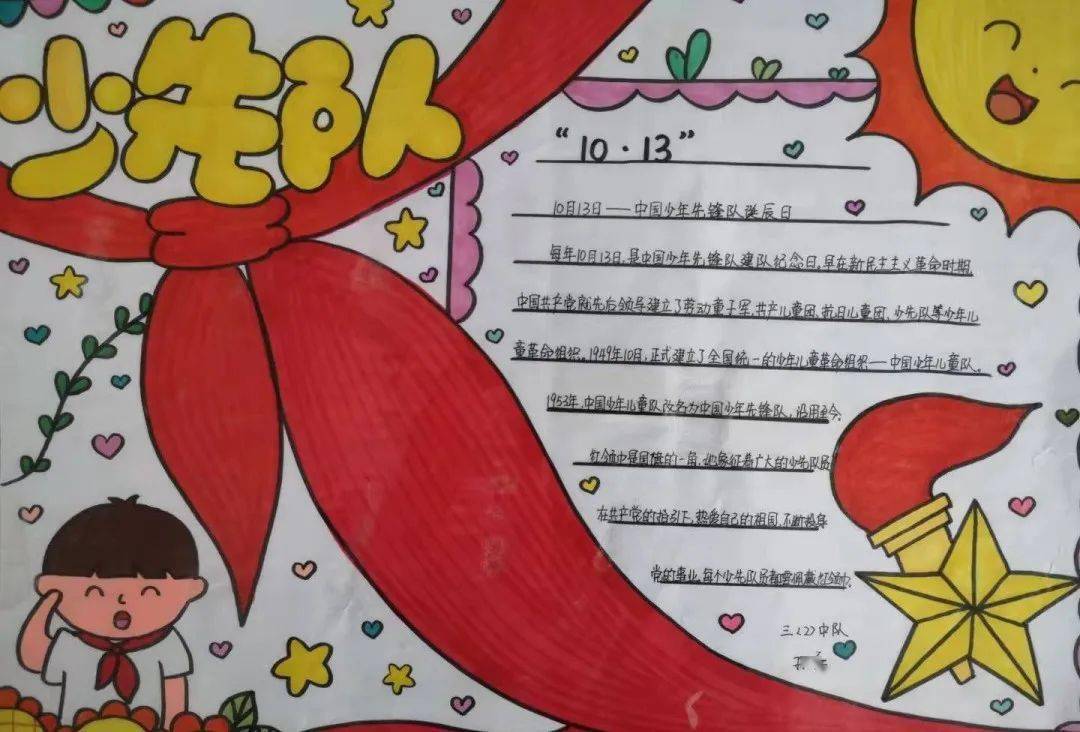 少先队
“10·13”
10月13日——中国少年先锋队诞辰日
每年10月13日,是中国少年先锋队建队纪念日,早在新民主主义革命时期,
中国共产党就先后领导建立了劳动童子军、共产儿童团、抗日儿童团、少先队等少年儿
童革命组织。1949年10月,正式建立了全国统一的少年儿童革命组织——中国少年儿童队。
1953年,中国少年儿童队改名为中国少年先锋队,沿用至今。
红领巾是国旗的一角,他象征着广大的少先队员
在共产党的指引下,热爱自己的祖国,不断投身
党的事业,每个少先队员都要佩戴红领巾。
三(2)中队